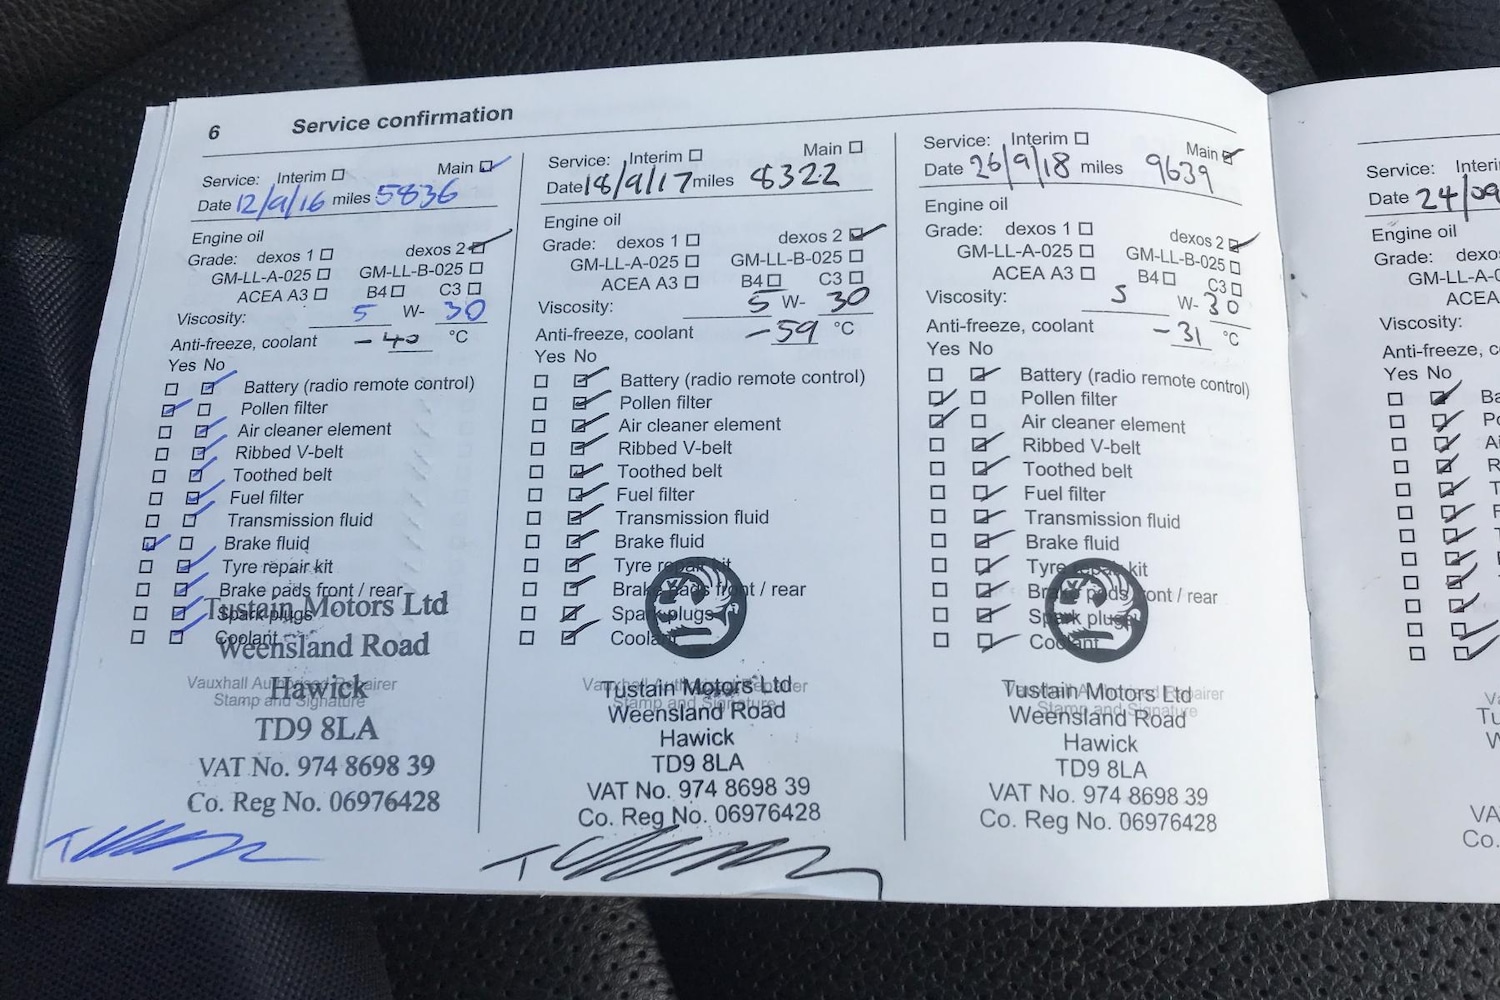 6 Service confirmation
Service: Interim Main
Date 12/9/16 miles 5836
Engine oil
Grade: dexos 1 dexos 2
GM-LL-A-025 GM-LL-B-025
ACEA A3 B4 C3
Viscosity: 5 W- 30
Anti-freeze, coolant -40 °C
Yes No
Battery (radio remote control)
Pollen filter
Air cleaner element
Ribbed V-belt
Toothed belt
Fuel filter
Transmission fluid
Brake fluid
Tyre repair kit
Brake pads front / rear
Spark plugs
Coolant
Tustain Motors Ltd
Weensland Road
Vauxhall Authorised Repairer
Hawick
Stamp and Signature
TD9 8LA
VAT No. 974 8698 39
Co. Reg No. 06976428
Service: Interim Main
Date 18/9/17 miles 8322
Engine oil
Grade: dexos 1 dexos 2
GM-LL-A-025 GM-LL-B-025
ACEA A3 B4 C3
Viscosity: 5 W- 30
Anti-freeze, coolant -59 °C
Yes No
Battery (radio remote control)
Pollen filter
Air cleaner element
Ribbed V-belt
Toothed belt
Fuel filter
Transmission fluid
Brake fluid
Tyre repair kit
Brake pads front / rear
Spark plugs
Coolant
Vauxhall Authorised Repairer
Tustain Motors Ltd
Stamp and Signature
Weensland Road
Hawick
TD9 8LA
VAT No. 974 8698 39
Co. Reg No. 06976428
Service: Interim Main
Date 26/9/18 miles 9639
Engine oil
Grade: dexos 1 dexos 2
GM-LL-A-025 GM-LL-B-025
ACEA A3 B4 C3
Viscosity: 5 W- 30
Anti-freeze, coolant -31 °C
Yes No
Battery (radio remote control)
Pollen filter
Air cleaner element
Ribbed V-belt
Toothed belt
Fuel filter
Transmission fluid
Brake fluid
Tyre repair kit
Brake pads front / rear
Spark plugs
Coolant
Vauxhall Authorised Repairer
Tustain Motors Ltd
Stamp and Signature
Weensland Road
Hawick
TD9 8LA
VAT No. 974 8698 39
Co. Reg No. 06976428
Service: Interi
Date 24/09
Engine oil
Grade: dexos
GM-LL-A-0
ACEA
Viscosity:
Anti-freeze, c
Yes No
Ba
Po
Ai
R
T
F
Va
Tu
W
VA
Co.